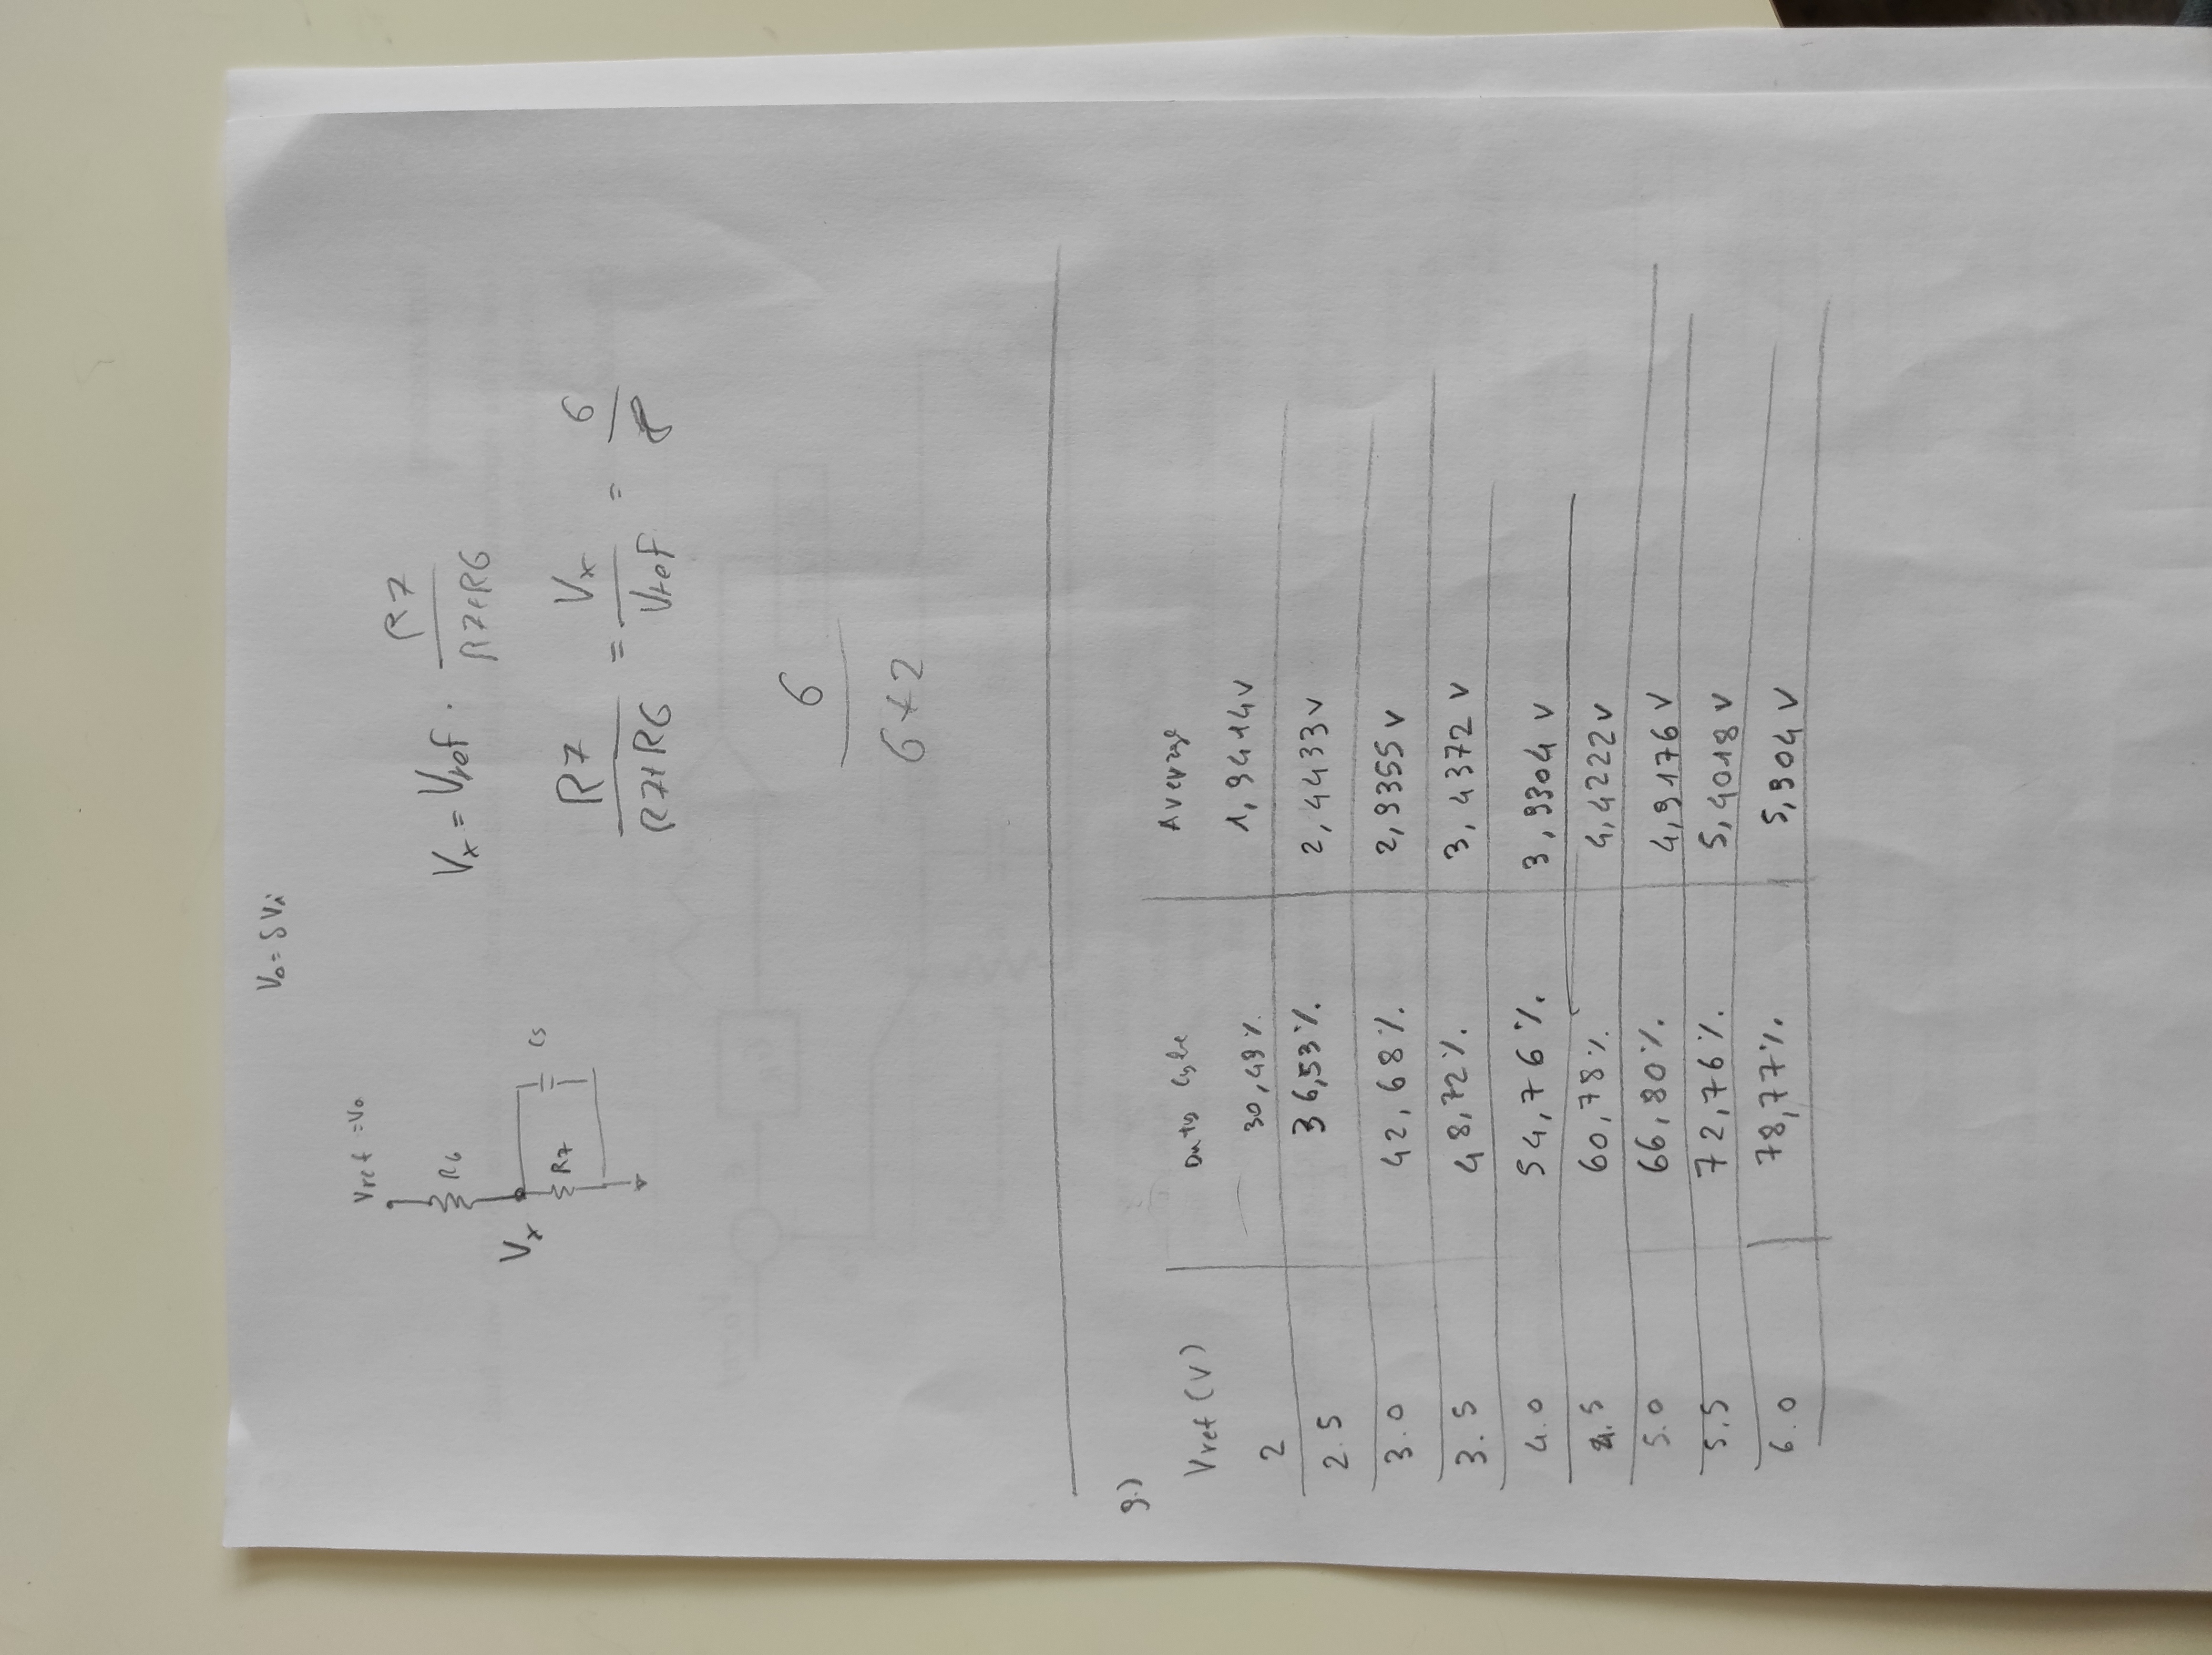 Vo = δ Vi
Vref = Vo
R6
Vx
R7
C5
Vx = Vref · R7 / R7+R6
R7 / R7+R6 = Vx / Vref = 6 / 8
6 / 6+2
g.)
Vref (V) Duty Cycle Average
2 30,49% 1,9414V
2.5 36,53% 2,4433V
3.0 42,68% 2,9355V
3.5 48,72% 3,4372V
4.0 54,76% 3,9304V
4.5 60,78% 4,4222V
5.0 66,80% 4,9176V
5.5 72,76% 5,4018V
6.0 78,77% 5,904V